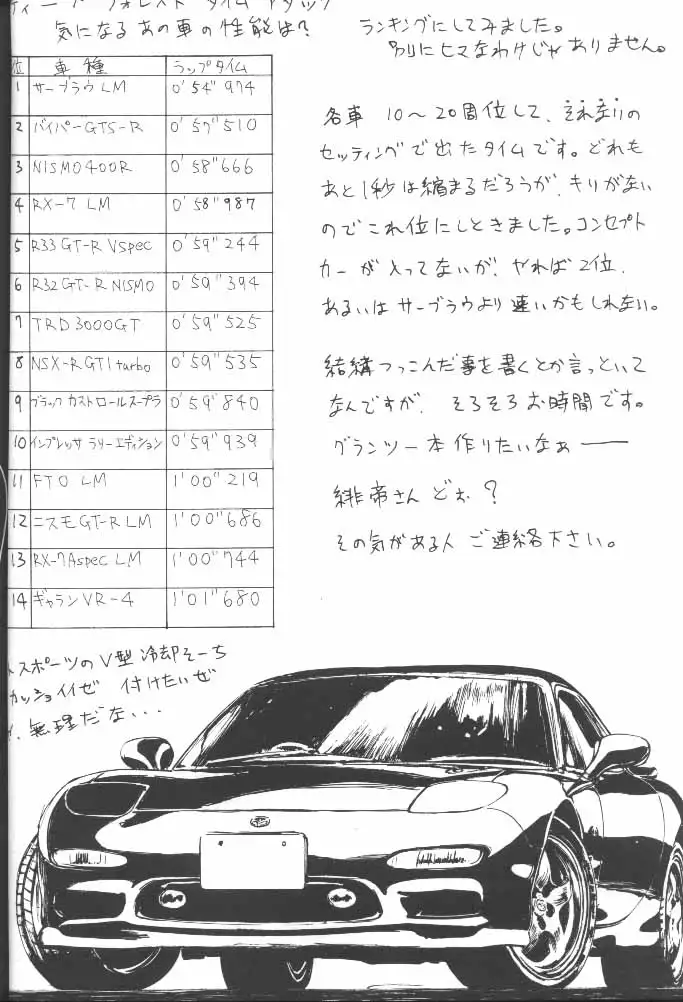 ディープフォレスト タイムアタック
気になるあの車の性能は?
ランキングにしてみました。
別にヒマなわけじゃありません。
位 車種 ラップタイム
1 サーブラウLM 0'54"974
2 バイパーGTS-R 0'57"510
3 NISMO400R 0'58"666
4 RX-7 LM 0'58"987
5 R33 GT-R Vspec 0'59"244
6 R32 GT-R NISMO 0'59"394
7 TRD3000GT 0'59"525
8 NSX-R GT1 turbo 0'59"535
9 ブラック カストロールスープラ 0'59"840
10 インプレッサ ラリーエディション 0'59"939
11 FTO LM 1'00"219
12 ニスモGT-R LM 1'00"686
13 RX-7 Aspec LM 1'00"744
14 ギャランVR-4 1'01"680
各車 10〜20周位して、それなりの
セッティングで出たタイムです。どれも
あと1秒は縮まるだろうが、キリがない
のでこれ位にしときました。コンセプト
カーが入ってないが、やれば2位、
あるいはサーブラウより速いかもしれない。
結構つっこんだ事を書くとか言っといて
なんですが、そろそろお時間です。
グランツー本作りたいなぁー
緋帝さんどぉ?
その気がある人ご連絡下さい。
スポーツのV型冷却そーち
カッショイイぜ 付けたいぜ
無理だな...